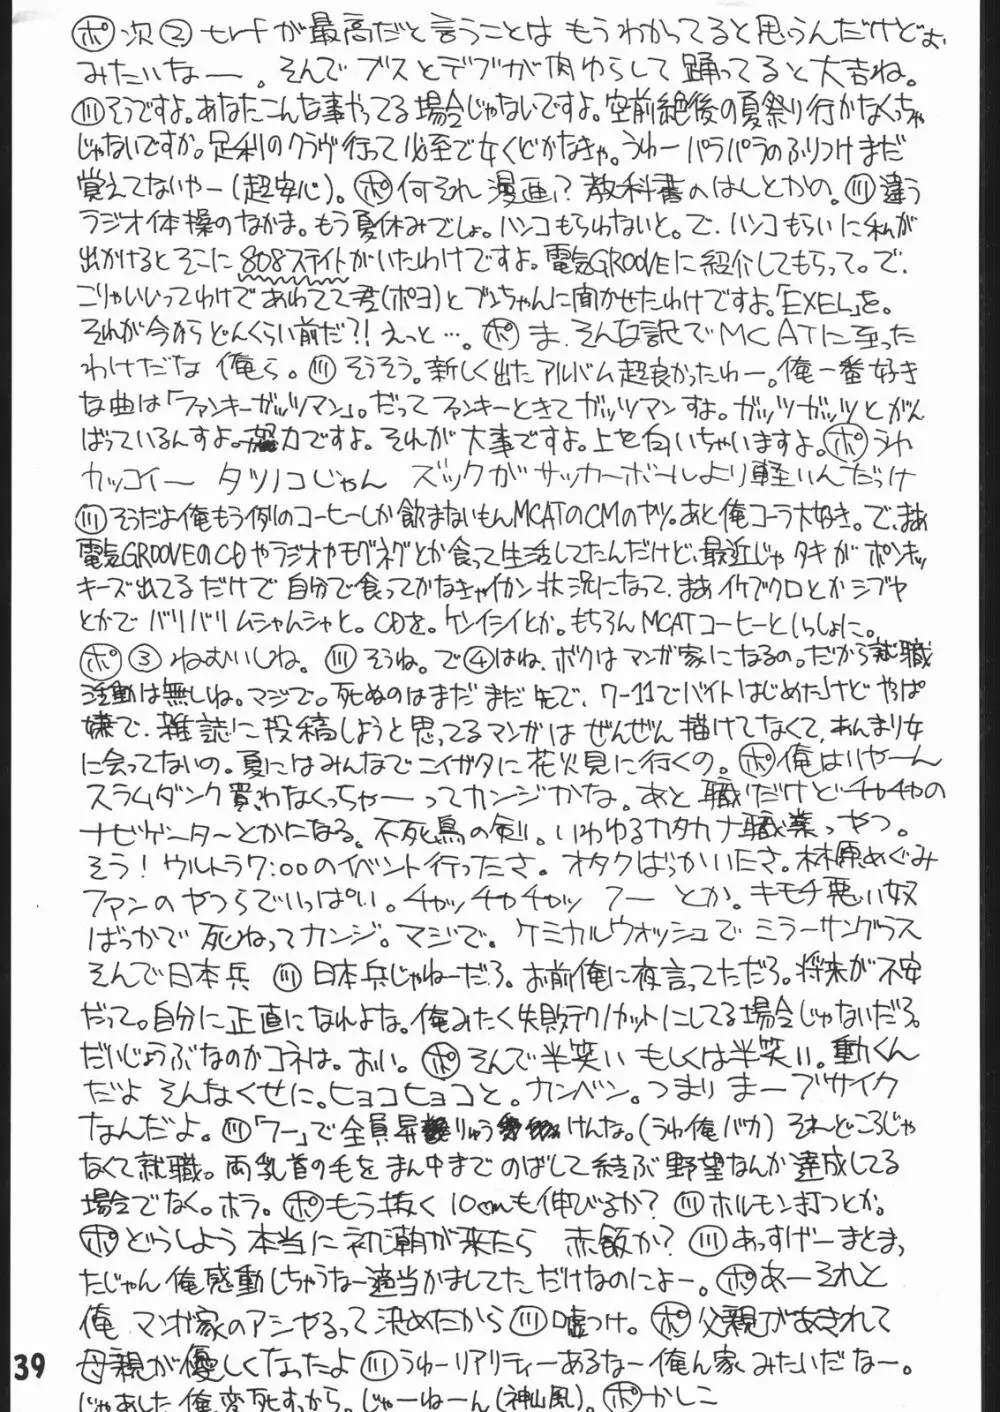 ポ 次② trfが最高だと言うことは もうわかってると思うんだけどぉ、
みたいなー。そんで ブスとデブが肉ゆらして 踊ってると大吉ね。
川 そうですよ。あなたこんな事やってる場合じゃないですよ。空前絶後の夏祭り行かなくちゃ
じゃないですか。足利のクラヴ行って 必至で女くどかなきゃ。うゅー パラパラのふりつけまだ
覚えてないやー(超安心)。ポ 何それ 漫画!? 教科書のはしとかの。川 違う
ラジオ体操のなかま。もう夏休みでしょ。ハンコもらわないと。で、ハンコもらいに私が
出かけるとそこに 808ステイトがいたわけですよ。電気GROOVEに紹介してもらって。で、
こりゃいいってわけであわてて君(ポヨ)とブンちゃんに聞かせたわけですよ。「EXEL」を。
それが今からどんくらい前だ?! えっと…。ポ ま、そんな訳でMCATに至った
わけだな 俺ら。川 そうそう。新しく出たアルバム超良かったわー。俺一番好き
な曲は「ファンキーガッツマン」。だってファンキーときてガッツマンすよ。ガッツガッツとがん
ばっているんすよ。努力ですよ。それが大事ですよ。上を向いちゃいますよ。ポ うわ
カッコイー タツノコじゃん ズックがサッカーボールより軽いんだっけ
川 そうだよ俺もう例のコーヒーしか飲まないもんMCATのCMのヤツ。あと俺コーラ大好き。で、まあ
電気GROOVEのCDやラジオやモグネグとか食って生活してたんだけど、最近じゃタキがポンキッ
キーズ出てるだけで 自分で食ってかなきゃイカン状況になって、まあイケブクロとかシブヤ
とかでバリバリムシャムシャと。CDを。ケンイシイとか。もちろんMCATコーヒーといっしょに。
ポ ③ ねむいしね。川 そうね。で④はね、ボクはマンガ家になるの。だから就職
活動は無しね。マジで。死ぬのはまだまだ先で、ワー11でバイトはじめたけどやっぱ
嫌で、雑誌に投稿しようと思ってるマンガはぜんぜん描けてなくて、あんまり女
に会ってないの。夏にはみんなでニイガタに花火見に行くの。ポ 俺はいやーん
スラムダンク買わなくっちゃーってカンジかな。あと 職だけどーチャチャの
ナビゲーターとかになる。不死鳥の剣!。いわゆるカタカナ職業っやつ。
そう! ウルトラ7:00のイベント行ったさ。オタクばっかいたさ。林原めぐみ
ファンのやつらでいっぱい。チャッチャチャッ フー とか。キモチ悪い奴
ばっかで 死ねってカンジ。マジで。ケミカルウォッシュで ミラーサングラス
そんで日本兵 川 日本兵じゃねーだろ。お前俺に夜言ってただろ。将来が不安
だって。自分に正直になれよな。俺みたく失敗テクノカットにしてる場合じゃないだろ。
だいじょうぶなのかコネは。おい。ポ そんで半笑い もしくは半笑い。動くん
だよ そんなくせに。ヒョコヒョコと。カンベン。つまり まーブサイク
なんだよ。川「フー」で全員昇りゅうけんな。(うわ俺バカ) それどころじゃ
なくて就職。両乳首の毛をまん中までのばして結ぶ野望なんか達成してる
場合でなく。ホラ。ポ もう抜く 10cmも伸びるか? 川 ホルモン打つとか。
ポ どうしよう 本当に初潮が来たら 赤飯か? 川 あっすげーまとまっ
たじゃん俺感動しちゃうなー適当かましてただけなのによー。ポ あーそれと
俺 マンガ家のアシやるって決めたから 川 嘘つけ。ポ 父親があきれて
母親が優しくなったよ 川 うゅーリアリティーあるなー俺ん家みたいだなー。
じゃあした俺変死すっから。じゃーねーん(神山風)。ポ かしこ
39